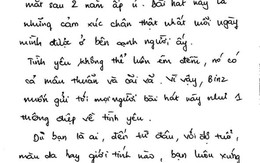 mắt sau 2 năm ấp ủ. Bài hát này là
những cảm xúc chân thật nhất mỗi ngày
mình được ở bên cạnh người ấy.
Tình yêu không thể luôn êm đềm, nó có
cả mâu thuẫn và cãi vã. Vì vậy, Binz
muốn gửi tới mọi người bài hát này như 1
thông điệp về tình yêu.
Dù bạn là ai, đến từ đâu, với độ tuổi,
màu da hay giới tính nào, bạn luôn xứng